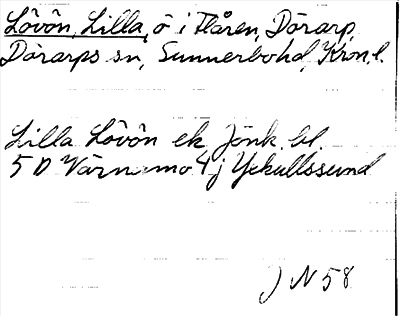 Lövön, Lilla, ö i Flåren, Dörarp,
Dörarps sn, Sunnerbo hd, Kron. l.
Lilla Lövön ek Jönk. bl.
5 D Värnamo 4 j Yekullssund
J N 58